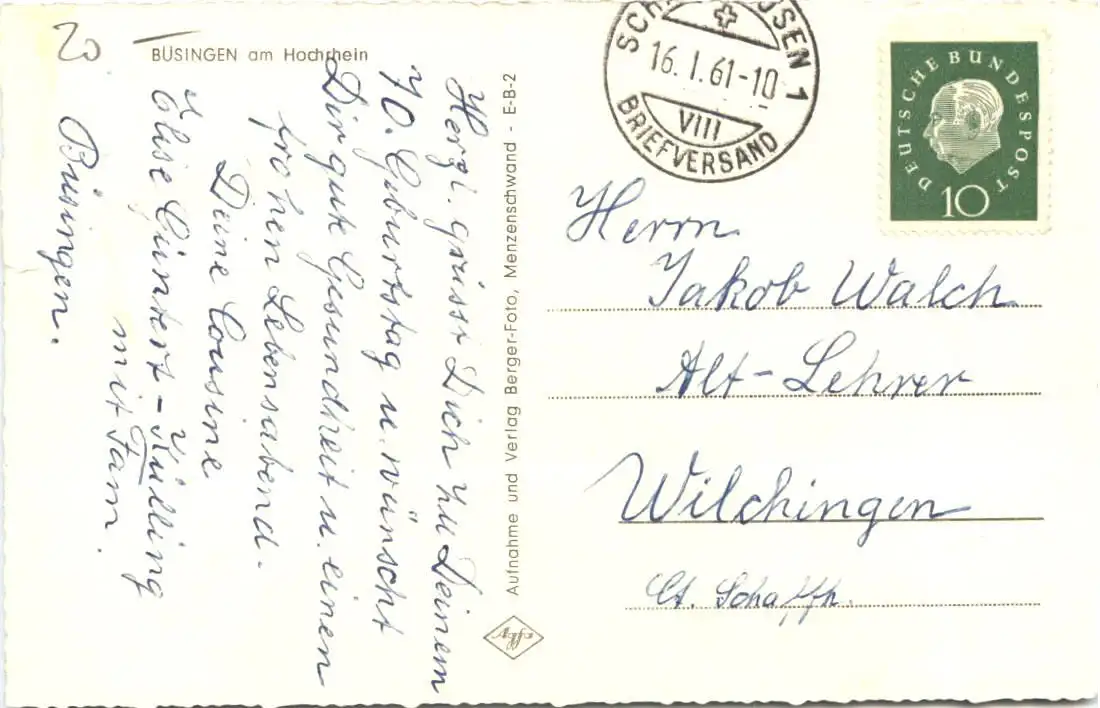 20
BÜSINGEN am Hochrhein
Herzl. grüsst Dich zu Deinem
70. Geburtstag u. wünscht
Dir gute Gesundheit u. einen
frohen Lebensabend.
Deine Cousine
Elise Güntert-Külling
mit Fam.
Büsingen.
Aufnahme und Verlag Berger-Foto, Menzenschwand - E-B-2
Agfa
16.I.61-10
VIII
BRIEFVERSAND
DEUTSCHE BUNDESPOST
10
Herrn
Jakob Walch
Alt-Lehrer
Wilchingen
Ct. Schaffh.